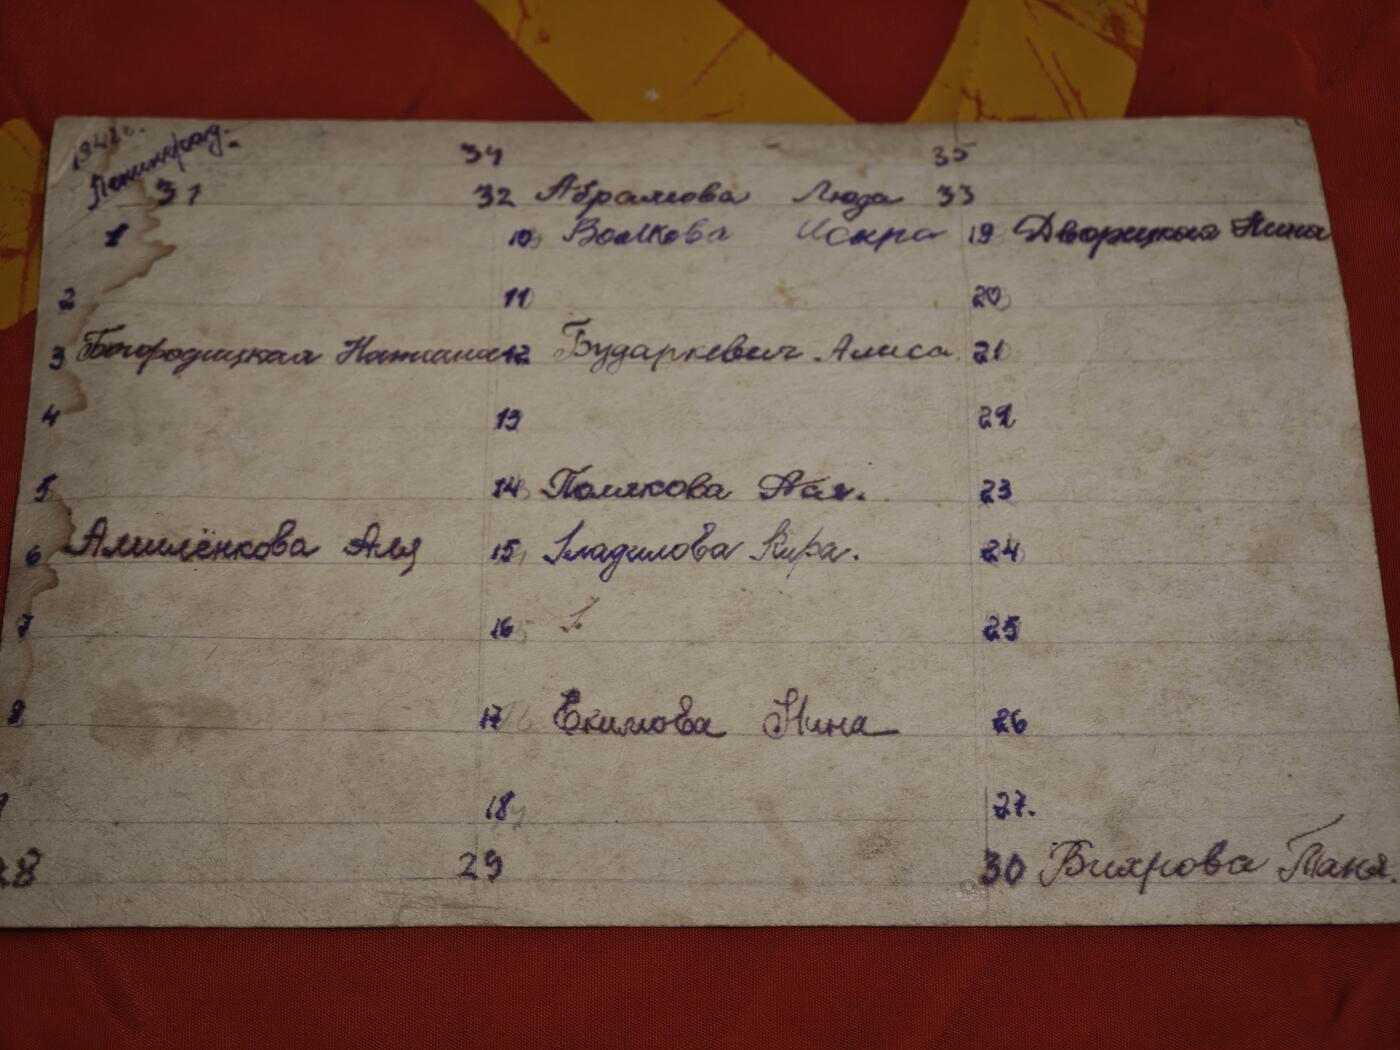 Ленинград.
34 35
31 32 Абрамова Люда 33
1 10 Волкова Искра 19 Дворицкая Нина
2 11 20
3 Богородицкая Наташа 12 Бударкевич Алиса 21
4 13 22
5 14 Полякова Ася.  23
6 Амилёнкова Аля 15 Гладилова Кира. 24
7 16 25
8 17 Екимова Нина 26
18 27.
28 29 30 Вихрова Таня.